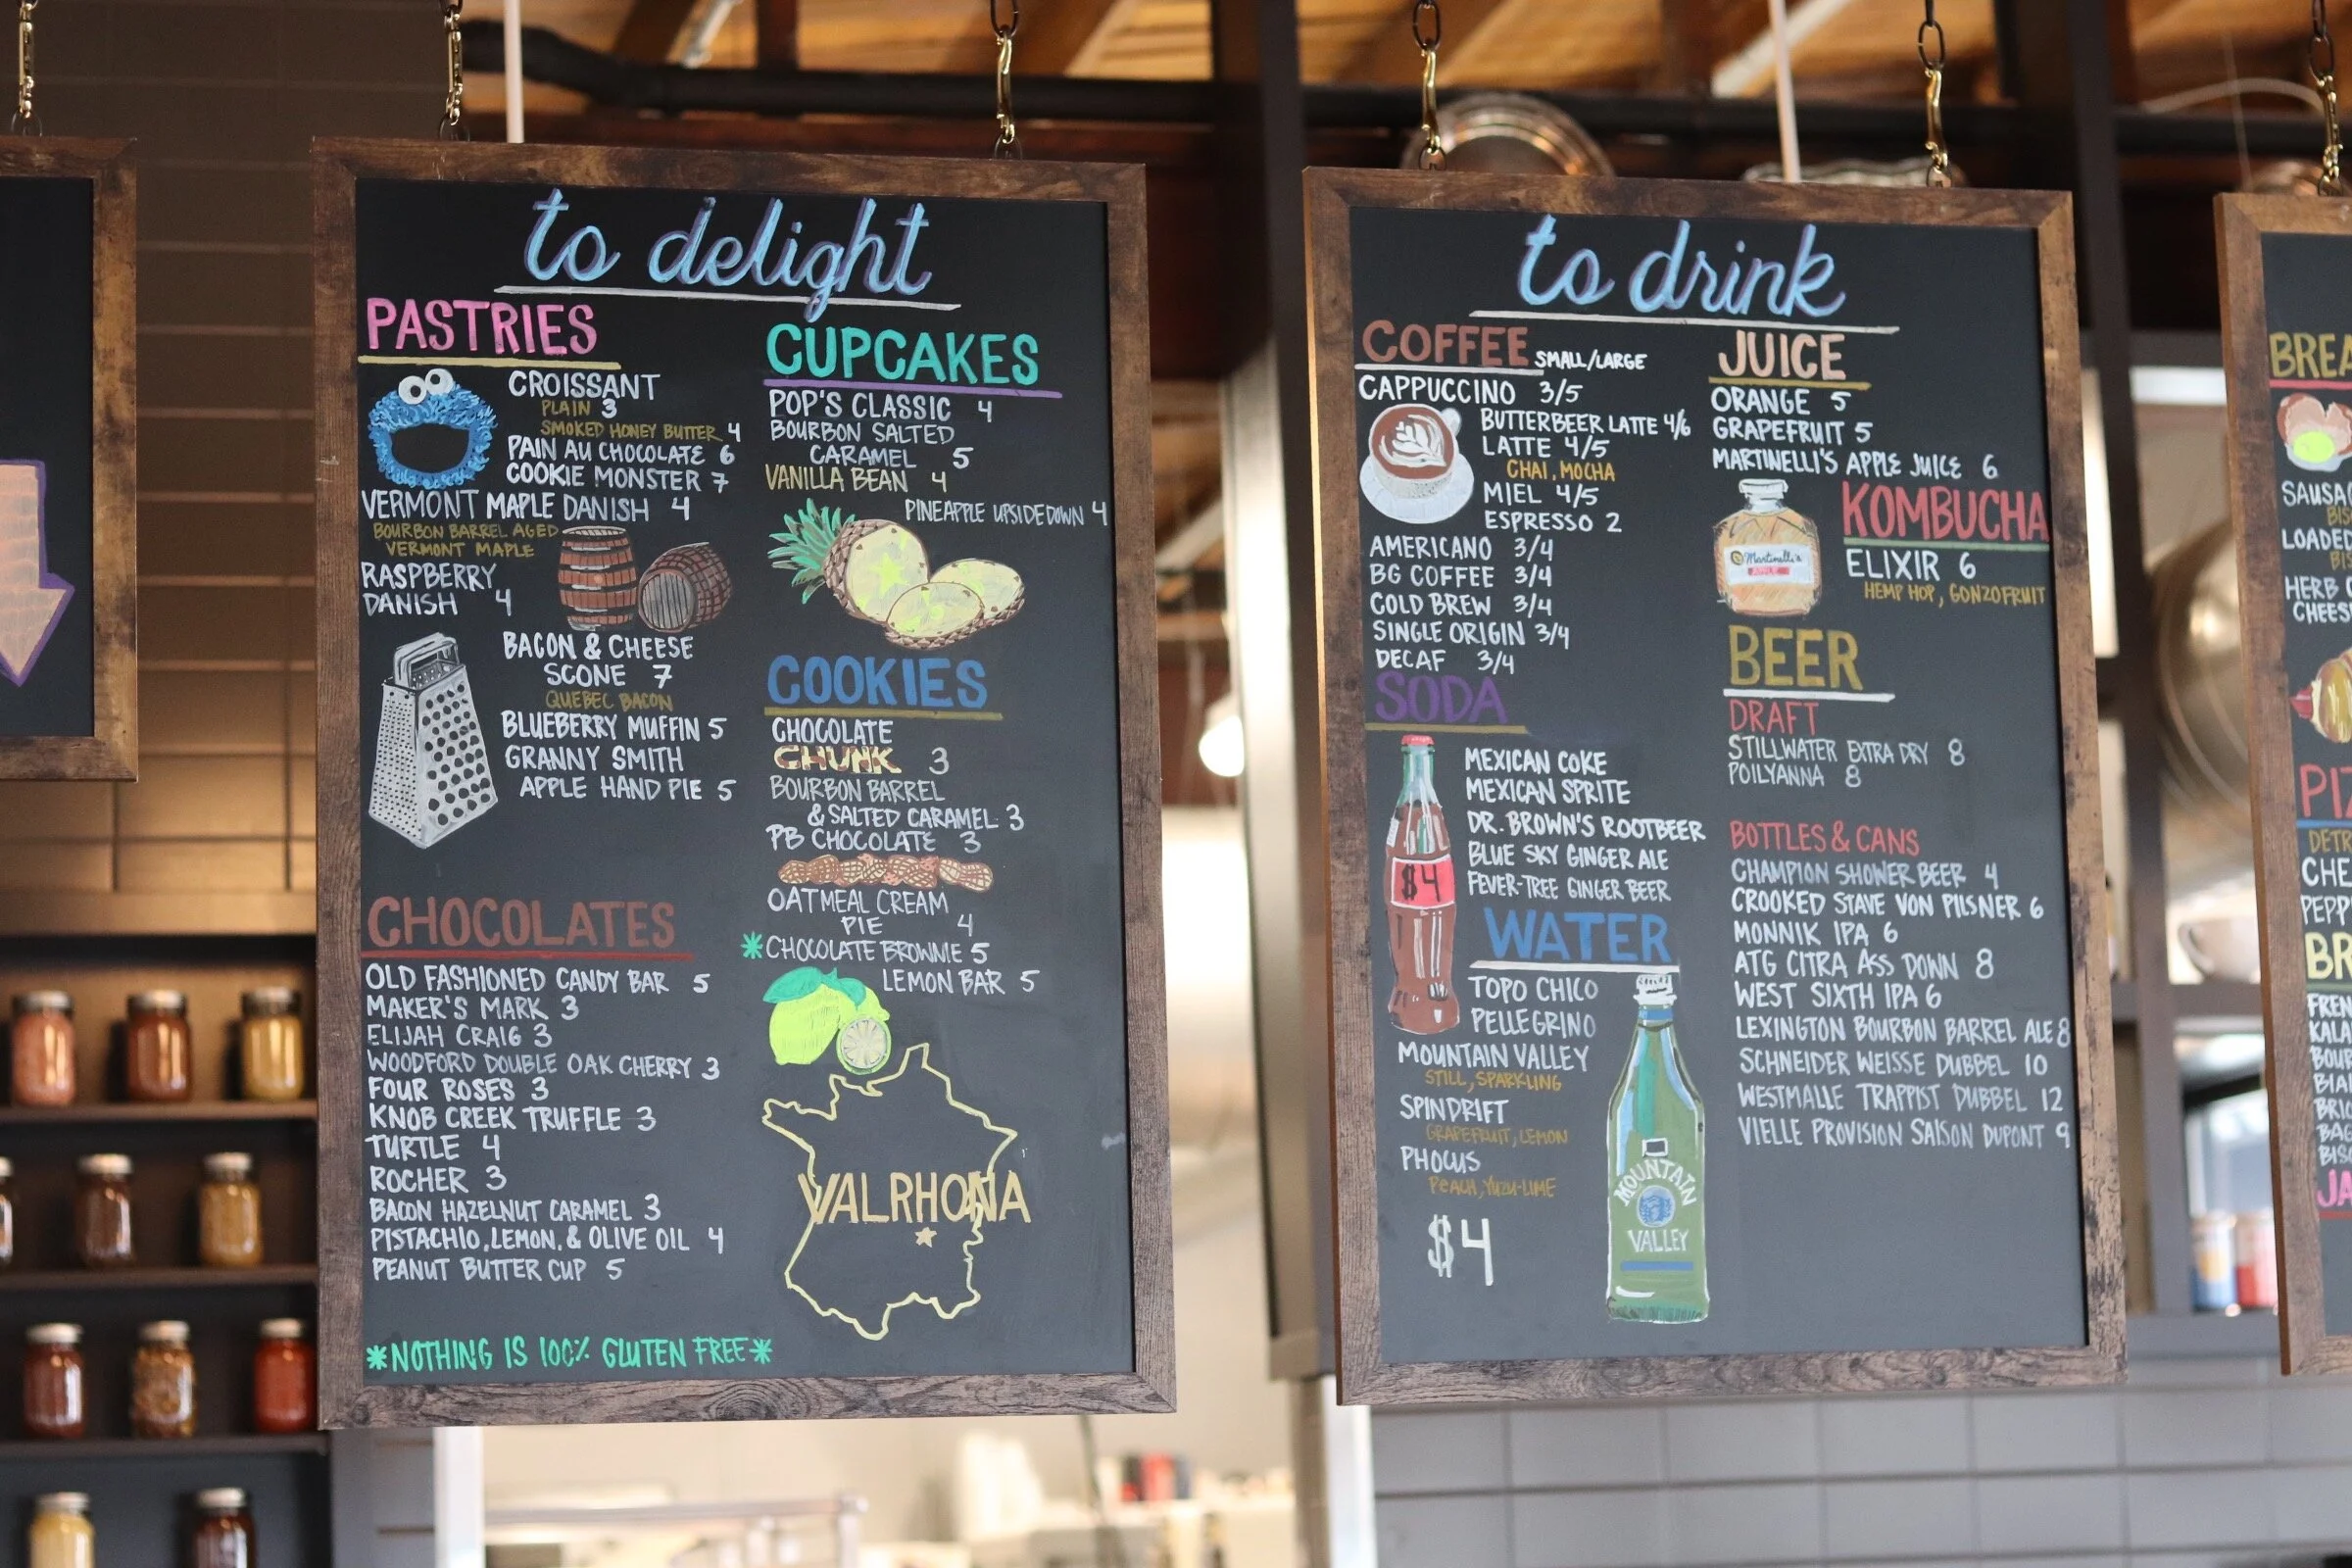 to delight
PASTRIES
CROISSANT
PLAIN 3
SMOKED HONEY BUTTER 4
PAIN AU CHOCOLATE 6
COOKIE MONSTER 7
VERMONT MAPLE DANISH 4
BOURBON BARREL AGED
VERMONT MAPLE
RASPBERRY
DANISH 4
BACON & CHEESE
SCONE 7
QUEBEC BACON
BLUEBERRY MUFFIN 5
GRANNY SMITH
APPLE HAND PIE 5
CHOCOLATES
OLD FASHIONED CANDY BAR 5
MAKER'S MARK 3
ELIJAH CRAIG 3
WOODFORD DOUBLE OAK CHERRY 3
FOUR ROSES 3
KNOB CREEK TRUFFLE 3
TURTLE 4
ROCHER 3
BACON HAZELNUT CARAMEL 3
PISTACHIO, LEMON, & OLIVE OIL 4
PEANUT BUTTER CUP 5
*NOTHING IS 100% GLUTEN FREE*
CUPCAKES
POP'S CLASSIC 4
BOURBON SALTED
CARAMEL 5
VANILLA BEAN 4
PINEAPPLE UPSIDEDOWN 4
COOKIES
CHOCOLATE
CHUNK 3
BOURBON BARREL
& SALTED CARAMEL 3
PB CHOCOLATE 3
OATMEAL CREAM
PIE 4
*CHOCOLATE BROWNIE 5
LEMON BAR 5
VALRHONA
to drink
COFFEE SMALL/LARGE
CAPPUCCINO 3/5
BUTTERBEER LATTE 4/6
LATTE 4/5
CHAI, MOCHA
MIEL 4/5
ESPRESSO 2
AMERICANO 3/4
BG COFFEE 3/4
COLD BREW 3/4
SINGLE ORIGIN 3/4
DECAF 3/4
SODA
MEXICAN COKE
MEXICAN SPRITE
DR. BROWN'S ROOTBEER
BLUE SKY GINGER ALE
FEVER-TREE GINGER BEER
$4
WATER
TOPO CHICO
PELLEGRINO
MOUNTAIN VALLEY
STILL, SPARKLING
SPINDRIFT
GRAPEFRUIT, LEMON
PHOCUS
PEACH, YUZU-LIME
$4
MOUNTAIN
VALLEY
JUICE
ORANGE 5
GRAPEFRUIT 5
MARTINELLI'S APPLE JUICE 6
Martinelli's
KOMBUCHA
ELIXIR 6
HEMP HOP, GONZOFRUIT
BEER
DRAFT
STILLWATER EXTRA DRY 8
POILYANNA 8
BOTTLES & CANS
CHAMPION SHOWER BEER 4
CROOKED STAVE VON PILSNER 6
MONNIK IPA 6
ATG CITRA ASS DOWN 8
WEST SIXTH IPA 6
LEXINGTON BOURBON BARREL ALE 8
SCHNEIDER WEISSE DUBBEL 10
WESTMALLE TRAPPIST DUBBEL 12
VIELLE PROVISION SAISON DUPONT 9
HERB